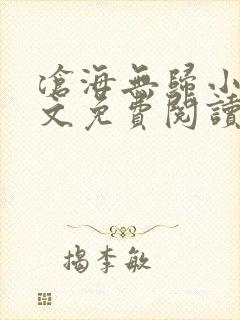 滄海無歸小
文免費閱讀
揭李敏